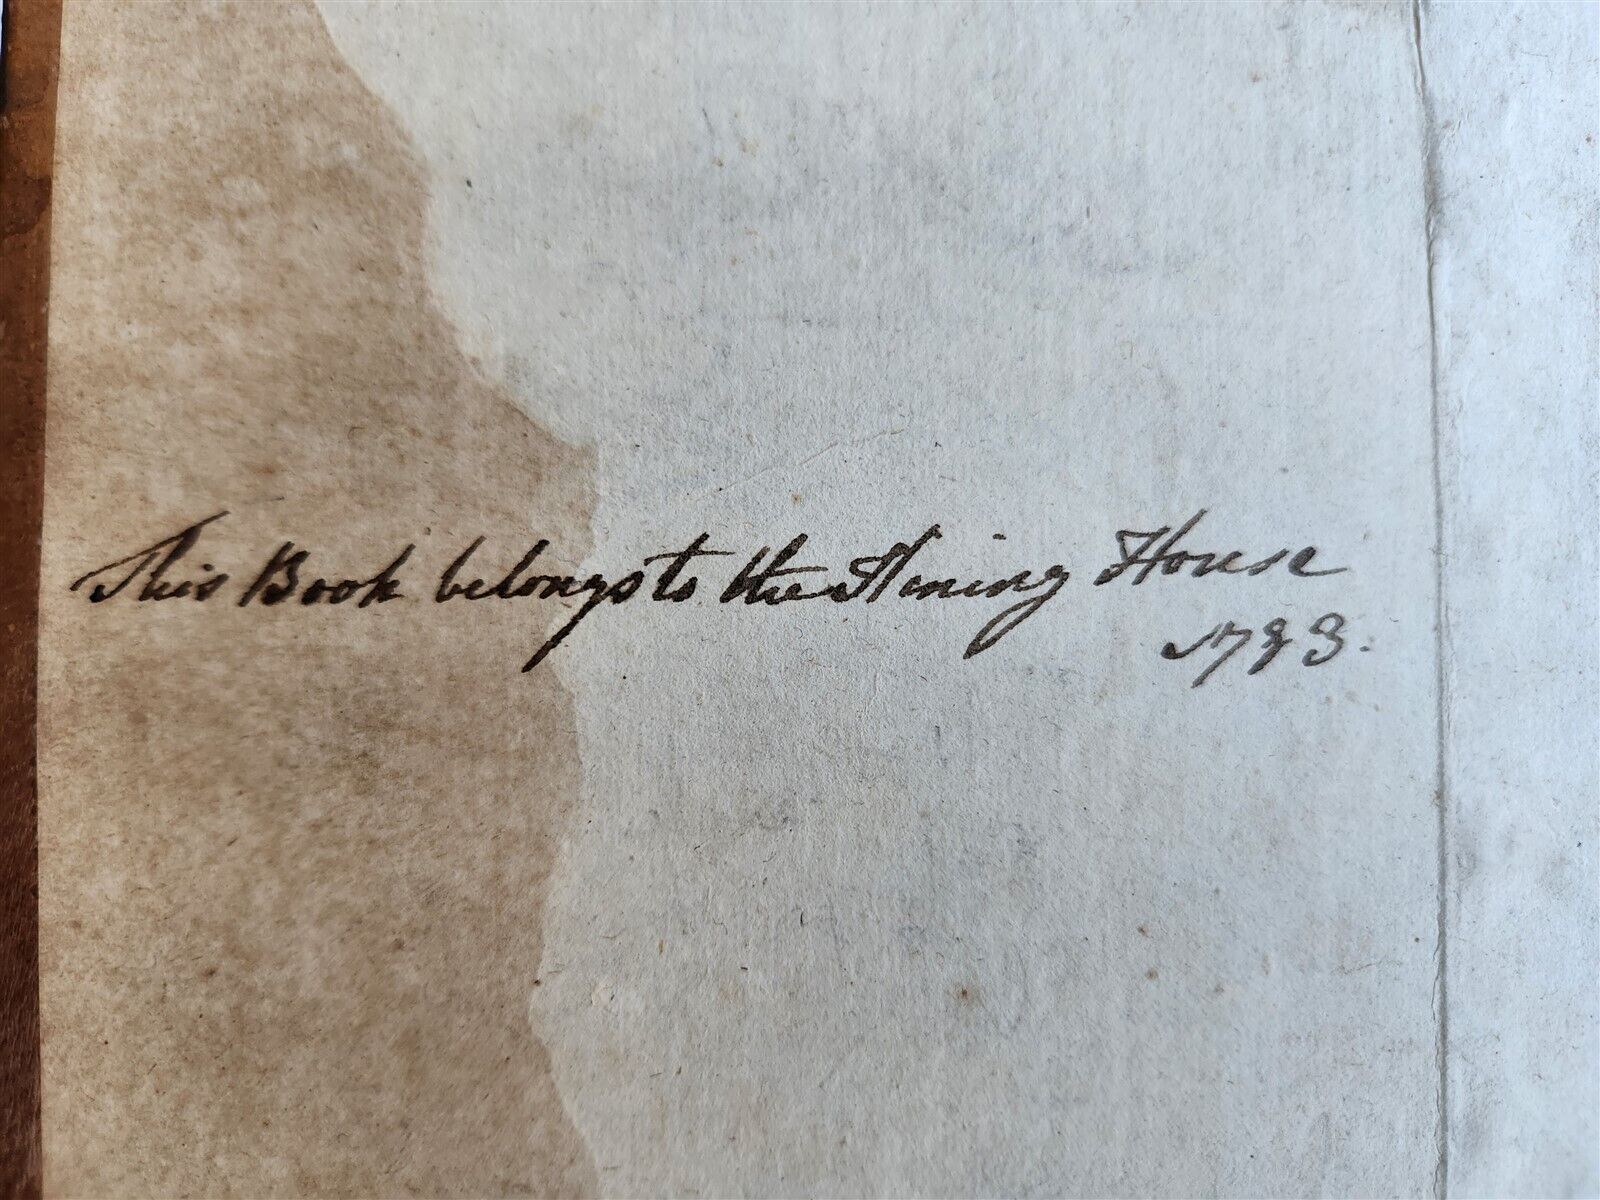 This Book belongs to the House
1783.